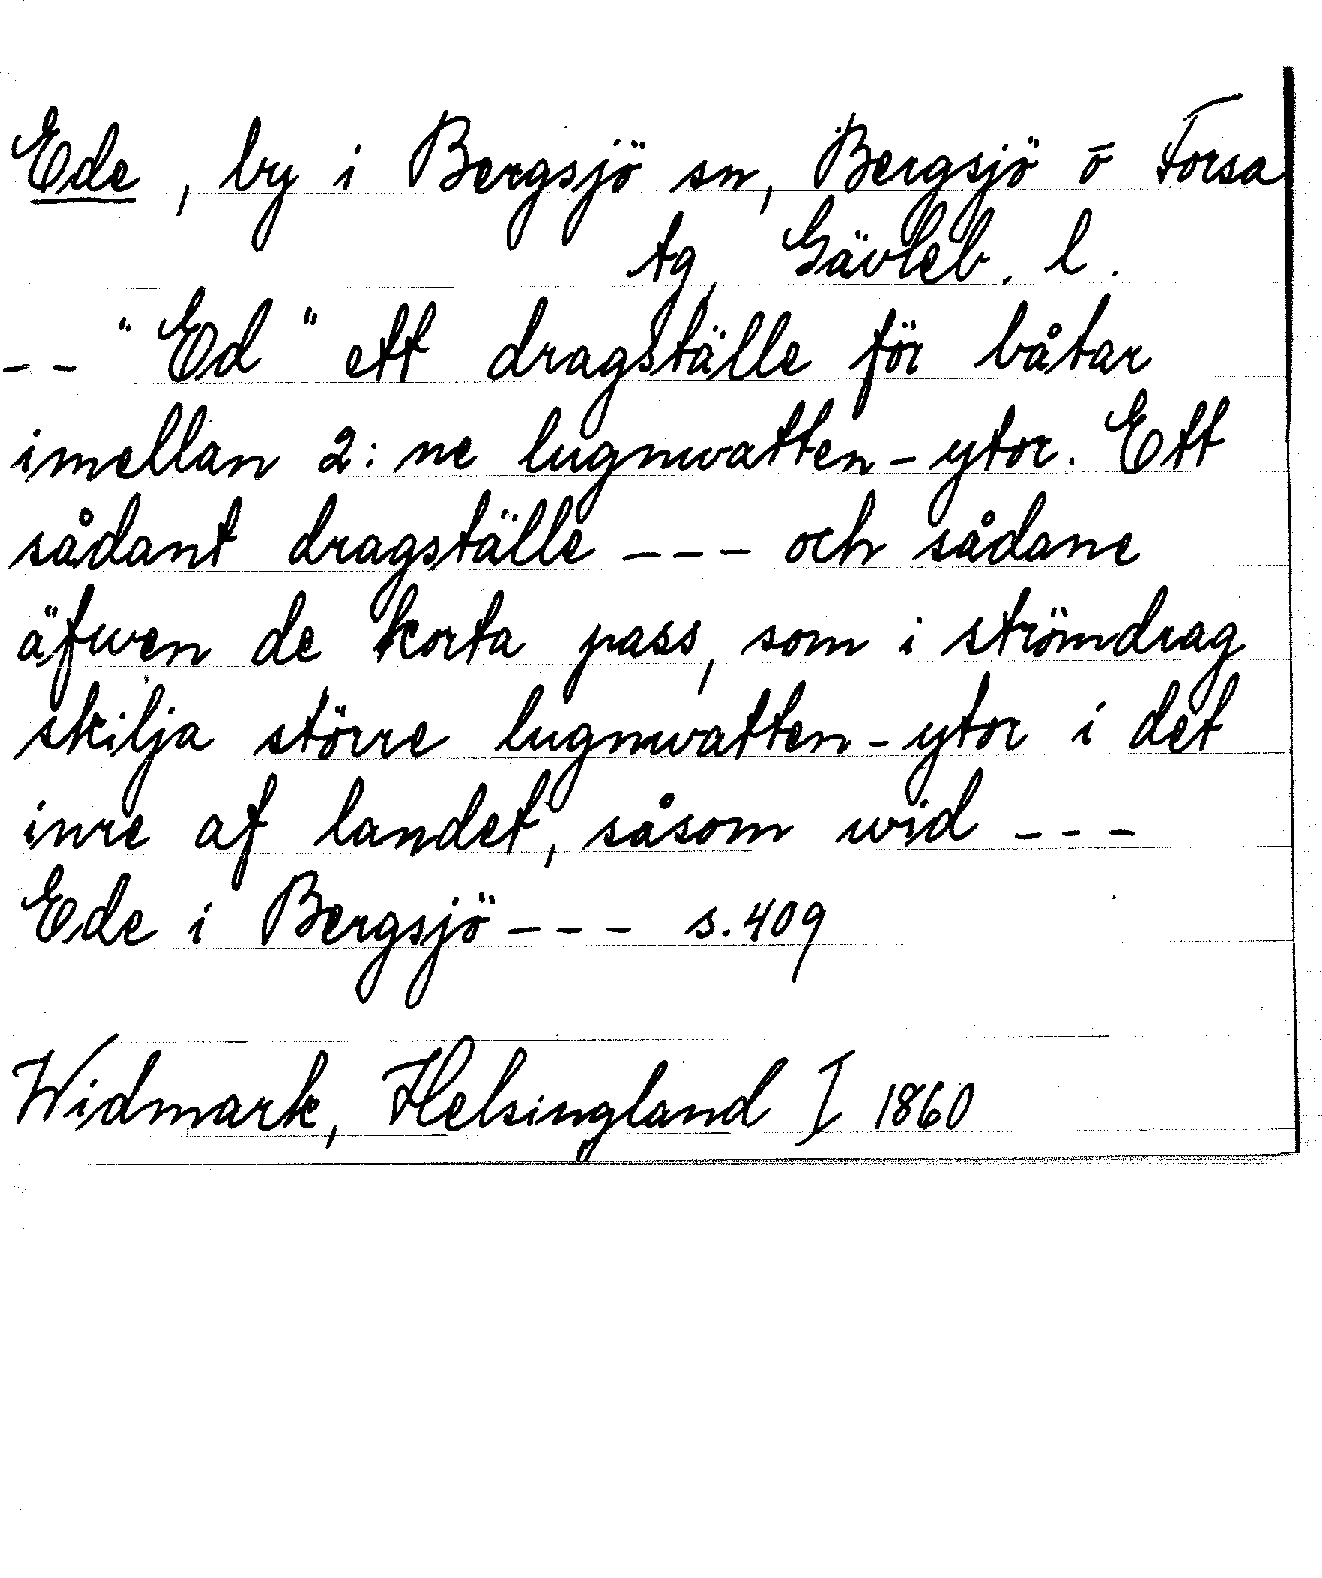 Ede, by i Bergsjö sn, Bergsjö o Forsa
tg, Gävleb. l.
-- "Ed" ett dragställe för båtar
imellan 2:ne lugnwatten-ytor. Ett
sådant dragställe --- och sådane
äfwen de korta pass, som i strömdrag
skilja större lugnwatten-ytor i det
inre af landet, såsom wid ---
Ede i Bergsjö --- s. 409
Widmark, Helsingland I 1860